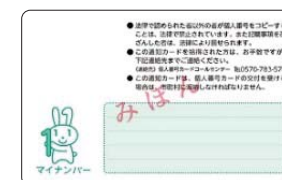 ●法律で認められた者以外の者が個人番号をコピーす
ことは、法律で禁止されています。また記載事項を
ざんした者は、法律により罰せられます。
●この通知カードを拾得された方は、お手数ですが
下記連絡先までご連絡ください。
(連絡先) 個人番号カードコールセンター 0570-783-57
●この通知カードは、個人番号カードの交付を受け
場合は、市町村に返納しなければなりません。
みほん
マイナンバー